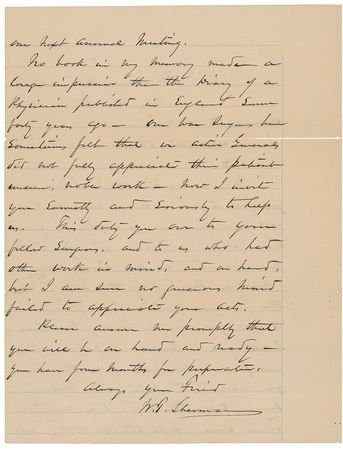 our next Annual Meeting.
No book in my Memory made a
longer impression than the Diary of a
Physician published in England Some
forty years ago — our War Surgeons have
Sometimes felt that we active Generals
did not fully appreciate their patient
unseen, noble work — Now I invite
you Earnestly and Seriously to help
us. This duty you owe to your
fellow Surgeons, and to us who had
other work in mind, and on hand,
but I am sure no generous mind
failed to appreciate your acts.
Please answer me promptly that
you will be on hand and ready —
you have four Months for preparation.
Always your Friend
W. T. Sherman